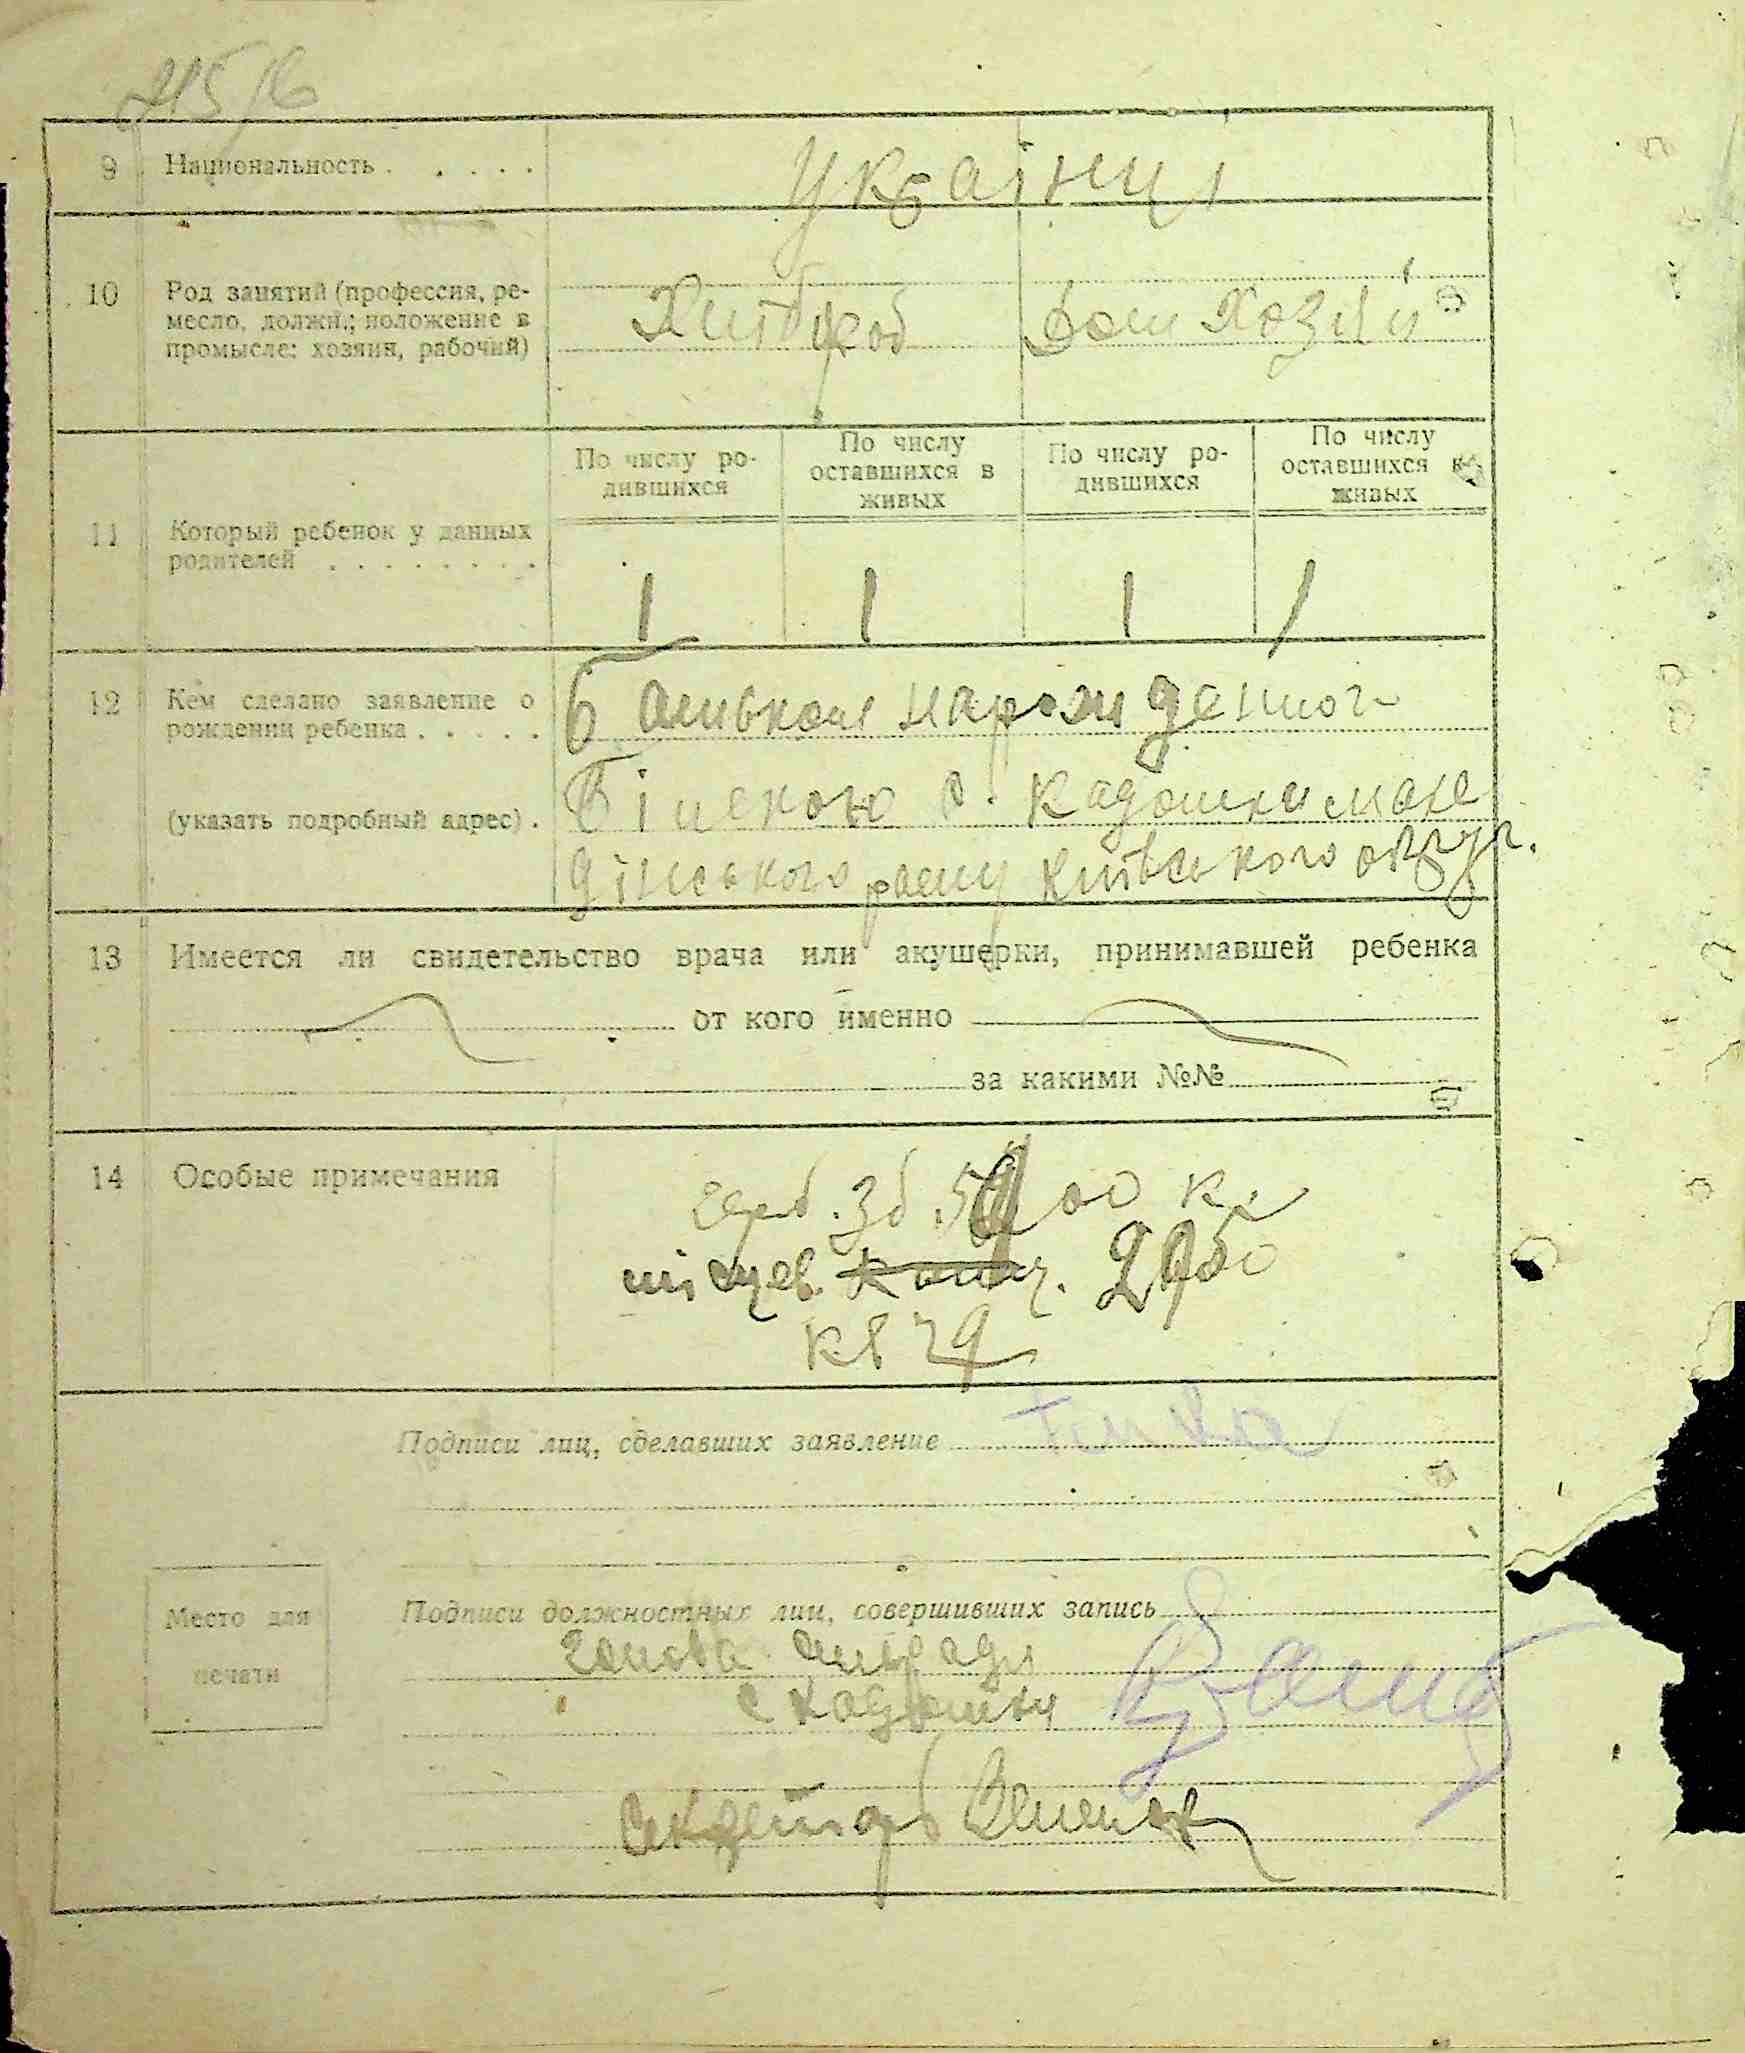 9 Национальность . . . . . Українці
10 Род занятий (профессия, ре-
месло, должн.; положение в
промысле: хозяин, рабочий)
Хлібороб Дом Хозяй
По числу ро-
дившихся
По числу
оставшихся в
живых
По числу ро-
дившихся
По числу
оставшихся в
живых
11 Который ребенок у данных
родителей . . . . . . . .
1 1 1 1
12 Кем сделано заявление о
рождении ребенка . . . . .
(указать подробный адрес) .
Батьком народженного
с. Кадомки мака
рівського рону Київського округ.
13 Имеется ли свидетельство врача или акушерки, принимавшей ребенка
от кого именно
за какими №№
14 Особые примечания
герб. зб. 00 к.
місцев.
кв 79
Подписи лиц, сделавших заявление
Место для
печати
Подписи должностных лиц, совершивших запись
Голова сільради
с Кадомки
Секретарь